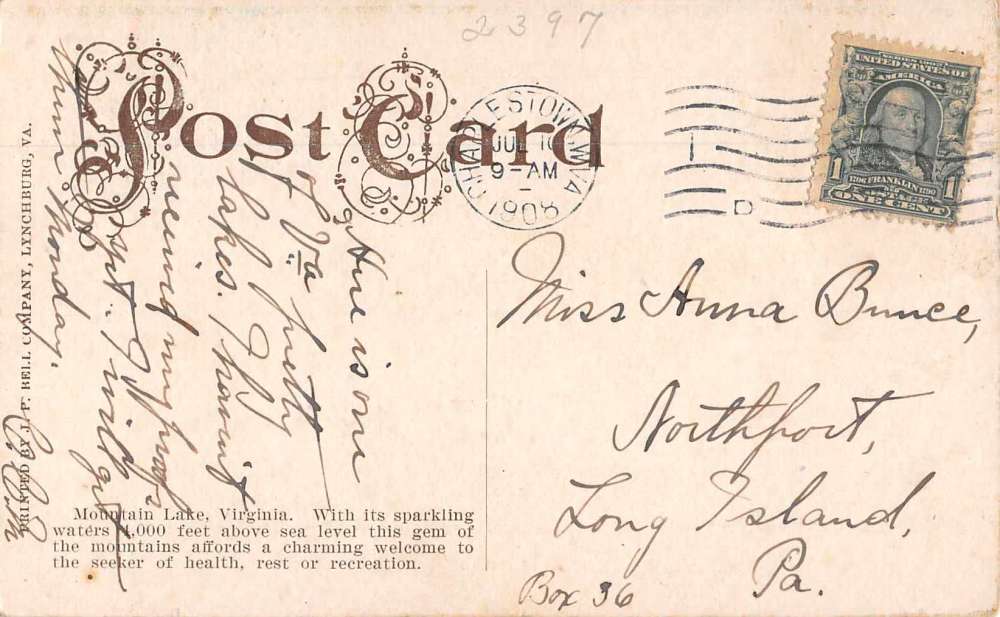 2397
Post Card
CHARLESTOWN W.VA
JUL 10
9-AM
1908
D
SERIES 1902
UNITED STATES OF
AMERICA
1 FRANKLIN 1
1706 1790
POSTAGE
ONE CENT
Here is one
of Va pretty
lakes. I haven't
received my
yet. I will get
Monday.
Miss Anna Bunce,
Northport,
Long Island,
Pa.
Box 36
PRINTED BY J. P. BELL COMPANY, LYNCHBURG, VA.
Mountain Lake, Virginia. With its sparkling
waters 4,000 feet above sea level this gem of
the mountains affords a charming welcome to
the seeker of health, rest or recreation.